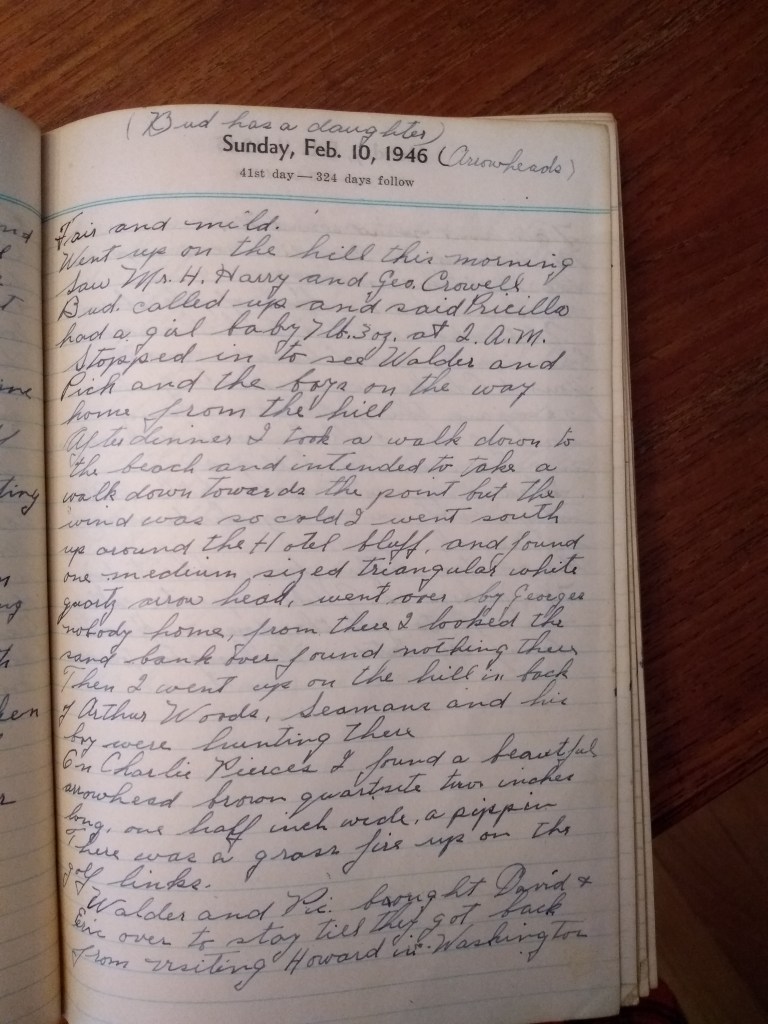 (Bud has a daughter)
Sunday, Feb. 10, 1946 (Arrowheads)
41st day — 324 days follow
Fair and mild.
Went up on the hill this morning
Saw Mr. H. Harry and Geo. Crowell
Bud. called up and said Pricilla
had a girl baby 7 lb. 3 oz. at 2. A.M.
Stopped in to see Walder and
Pick and the boys on the way
home from the hill
After dinner I took a walk down to
the beach and intended to take a
walk down towards the point but the
wind was so cold I went south
up around the Hotel bluff, and found
one medium sized triangular white
quartz arrow head, went over by Georges
nobody home, from there I looked the
sand bank over found nothing there
Then I went up on the hill in back
of Arthur Woods, Seamans and his
boy were hunting there
On Charlie Pierces I found a beautful
arrowhead brown quartsite two inches
long, one half inch wide, a pippin
There was a grass fire up on the
golf links.
Walder and Pic. brought David &
Eric over to stay till they got back
from visiting Howard in Washington